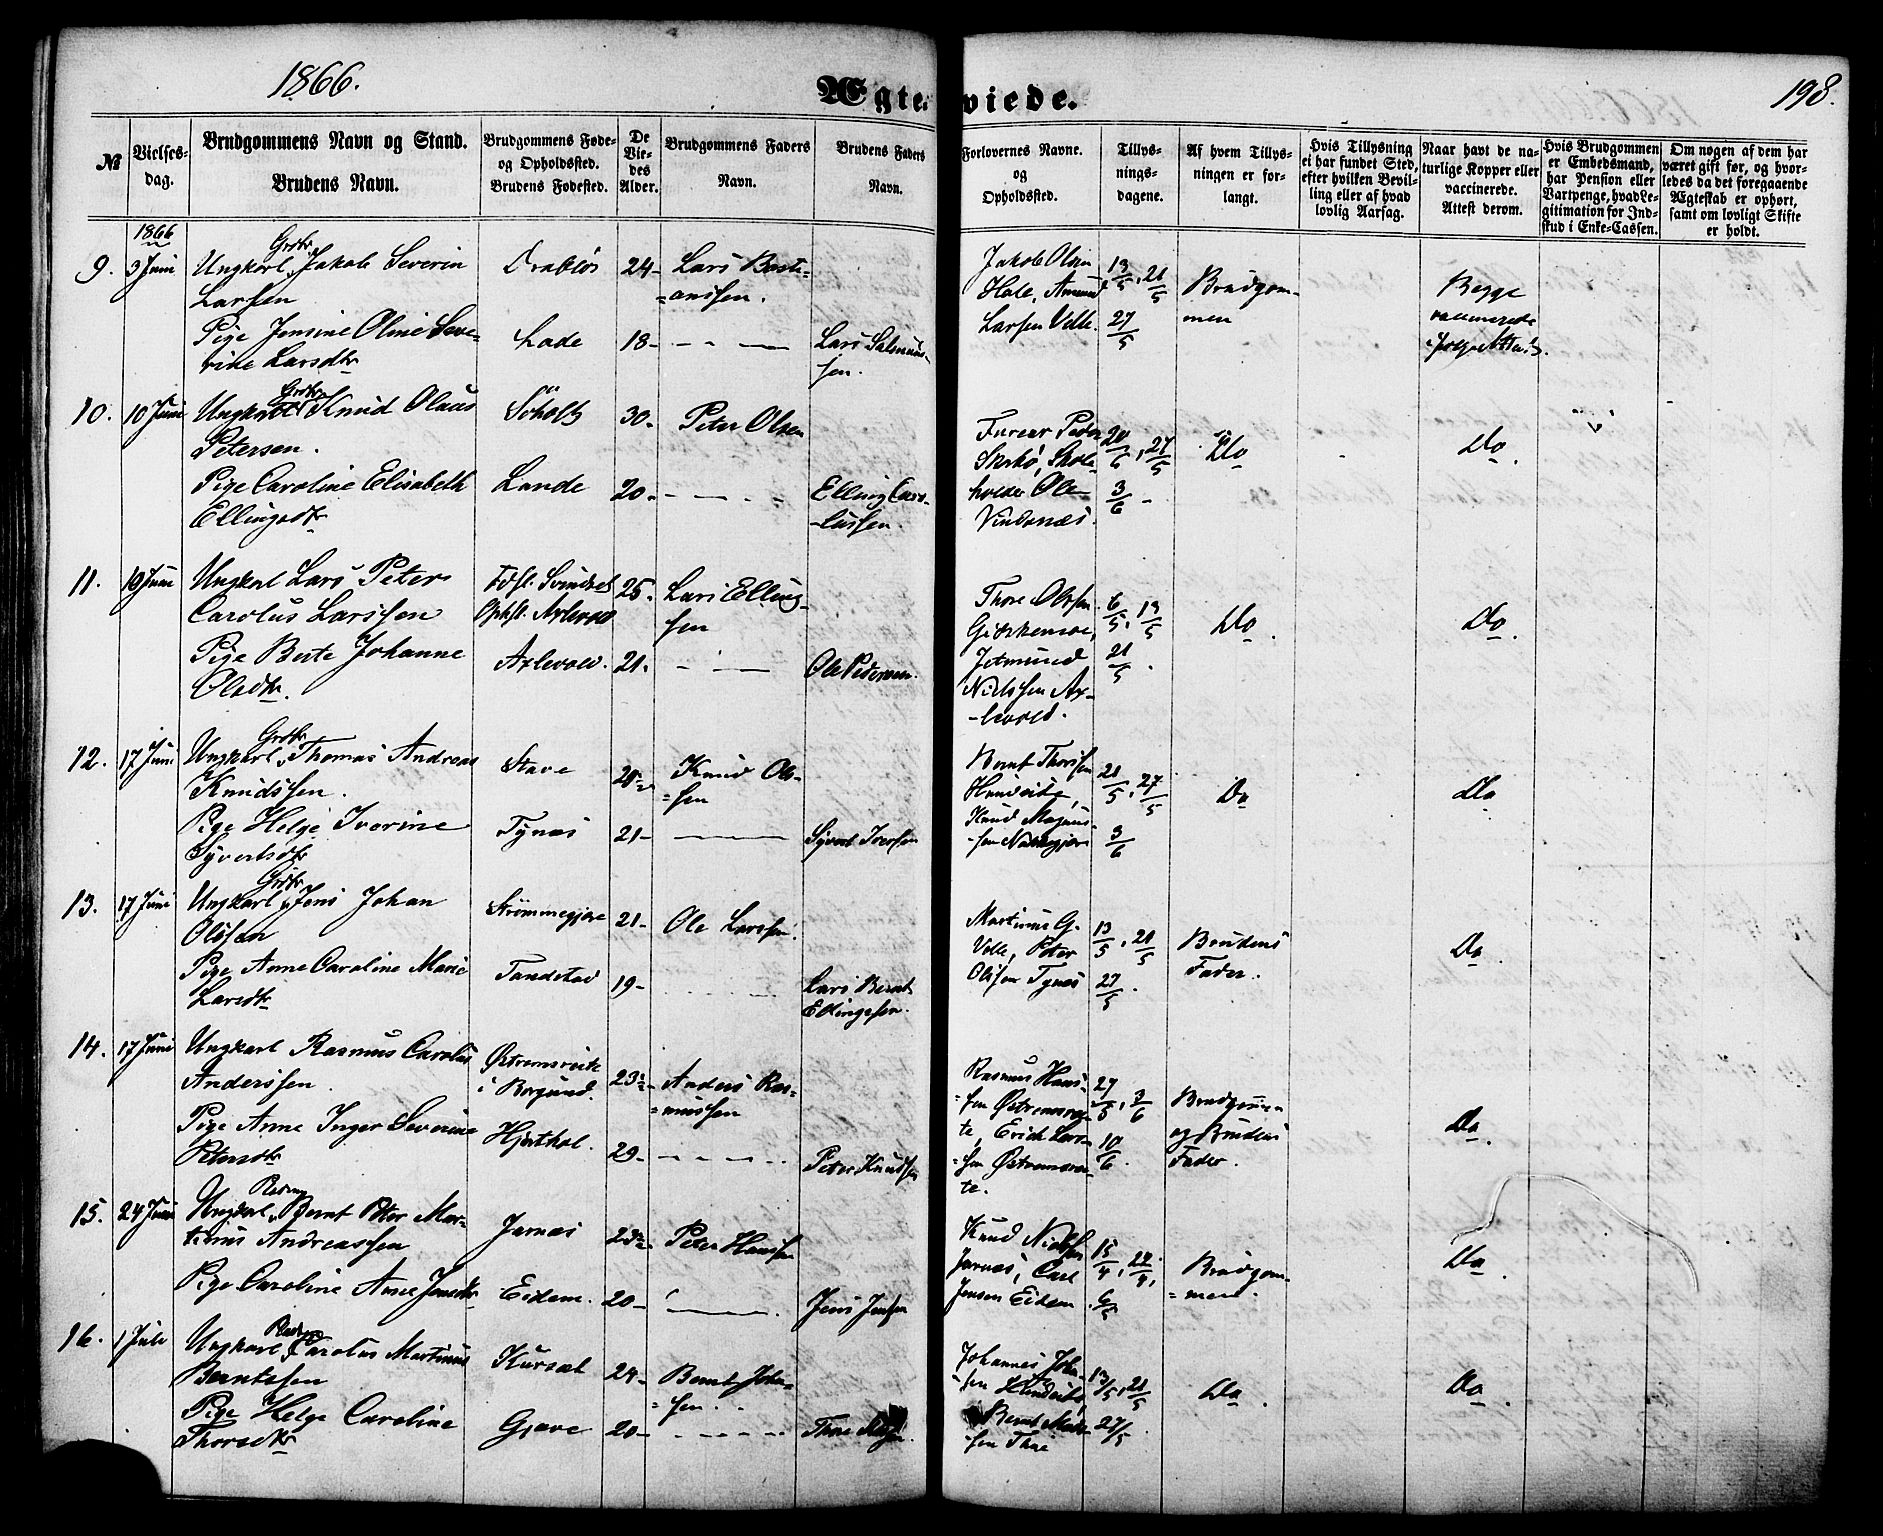 1866.
Ægteviede.
198.
№
Vielses-dag.
Brudgommens Navn og Stand.
Brudens Navn.
Brudgommens Føde- og Opholdssted.
Brudens Fødested.
De Viedes Alder.
Brudgommens Faders Navn.
Brudens Faders Navn.
Forlovernes Navne. og Opholdsted.
Tillysningsdagene.
Af hvem Tillysningen er forlangt.
Hvis Tillysning ei har fundet Sted, efter hvilken Bevilling eller af hvad lovlig Aarsag.
Naar havt de naturlige Kopper eller vaccinerede. Attest derom.
Hvis Brudgommen er Embedsmand, har Pension eller Vartpenge, hvad Legitimation for Indskud i Enke-Cassen.
Om nogen af dem har været gift før, og hvorledes da det foregaaende Ægteskab er ophørt, samt om lovligt Skifte er holdt.
1866
9. 3 Juni Ungkarl Grdbr Jakob Severin Larsen
Drabløs 24 Lars Basti=anssen.
Pige Jensine Oline Severine Larsdtr
Lade 18 Lars Salmunssen.
Jakob Olsen Hole, Amund Larssen Velle.
13/5, 21/5 27/5
Brudgommen
Begge vaccinerede
10. 10 Juni Ungkarl Grdbr Knud Olaus Petersen.
Søholt 30 Peter Olsen
Pige Caroline Elisabeth Ellingsdtr
Lande 20 Elling Carolussen.
Peder Skrkø, Skoleholder Ole Vindsnæs.
20/5, 27/5 3/6
Do
Do.
11. 10 Juni Ungkarl Lars Peter Carolus Larssen
Fdst. Svindset Ophst. Axlevold 25 Lars Ellingsen
Pige Berte Johanne Olsdtr.
Axlevold. 21 Ole Pedersen.
Thore Olssen Giskemoe, Jetmund Nielssen Axlevold.
6/5, 13/5 21/5.
Do.
Do.
12. 17 Juni Ungkarl Grdbr Thomas Andreas Knudssen.
Stave Knud Olssen
Pige Helge Iverine Syvertsdtr
Tynæs 21 Syvert Iverssen
Bernt Thorssen Hundeide, Knud Magnussen
21/5, 27/5 3/6
Do
Do
13. 17 Juni Ungkarl Grdbr Jens Johan Olssen
Strømmegjære 21 Ole Larssen.
Pige Anne Caroline Marie Larsdtr
Tandstad 19 Lars Bernt Ellingsen.
Martinus G. Velle, Peter Olssen Tynæs
13/5, 21/5 27/5.
Brudens Fader.
Do.
14. 17 Juni Ungkarl Rasmus Carolus Anderssen.
Østremsvite i Borgund. 23½ Anders Rasmussen
Pige Anne Inger Severine Petersdtr
Hjorthol. 29 Peter Knudsen
Rasmus Hanssen, Erich Larssen
27/5, 3/6 10/6.
Brudgommen og Brudens Fader.
Do.
15. 24 Juni Ungkarl Bernt Peter Martinus Andreassen
Jarnæs 23½ Peter Hanssen
Pige Caroline Anne Jensdtr
Eidem. 20 Jens Jenssen
Knud Nielssen Jarnæs, Carl Jensen Eidem.
15/4, 22/4, 6/5
Brudgommen.
Do.
16. 1 Juli Ungkarl Carolus Martinus Berntssen
Kursæt 24 Bernt Johnsen.
Pige Helge Caroline Thorsdtr
Gjære 20 Thore
Johannes Johnsen Hundeide, Bernt
13/5, 21/5 27/5
Do.
Do.